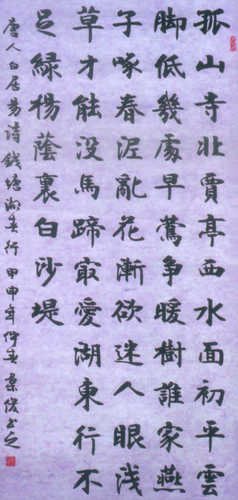 孤山寺北賈亭西水面初平雲
脚低幾處早鶯争暖樹誰家燕
子啄春泥亂花漸欲迷人眼淺
草才能没馬蹄冣愛湖東行不
足緑楊蔭裏白沙堤
唐人白居易詩錢塘湖春行 甲申年仲春